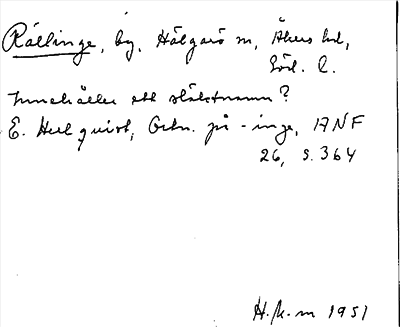 Rällinge, by, Hölgarö m, Åkers hd,
Söd. l.
Innehåller ett släktnamn?
E. Hellquist, Ortn. på -inge, ANF
26, s. 364
H.k.m 1951